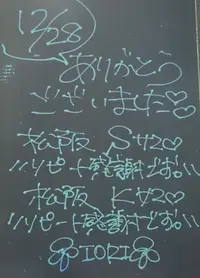 12/28
ありがとう
ございました♡♡
松阪 S様♡
リピート感謝です!!
松阪 K様♡
リピート感謝です!!
IORI